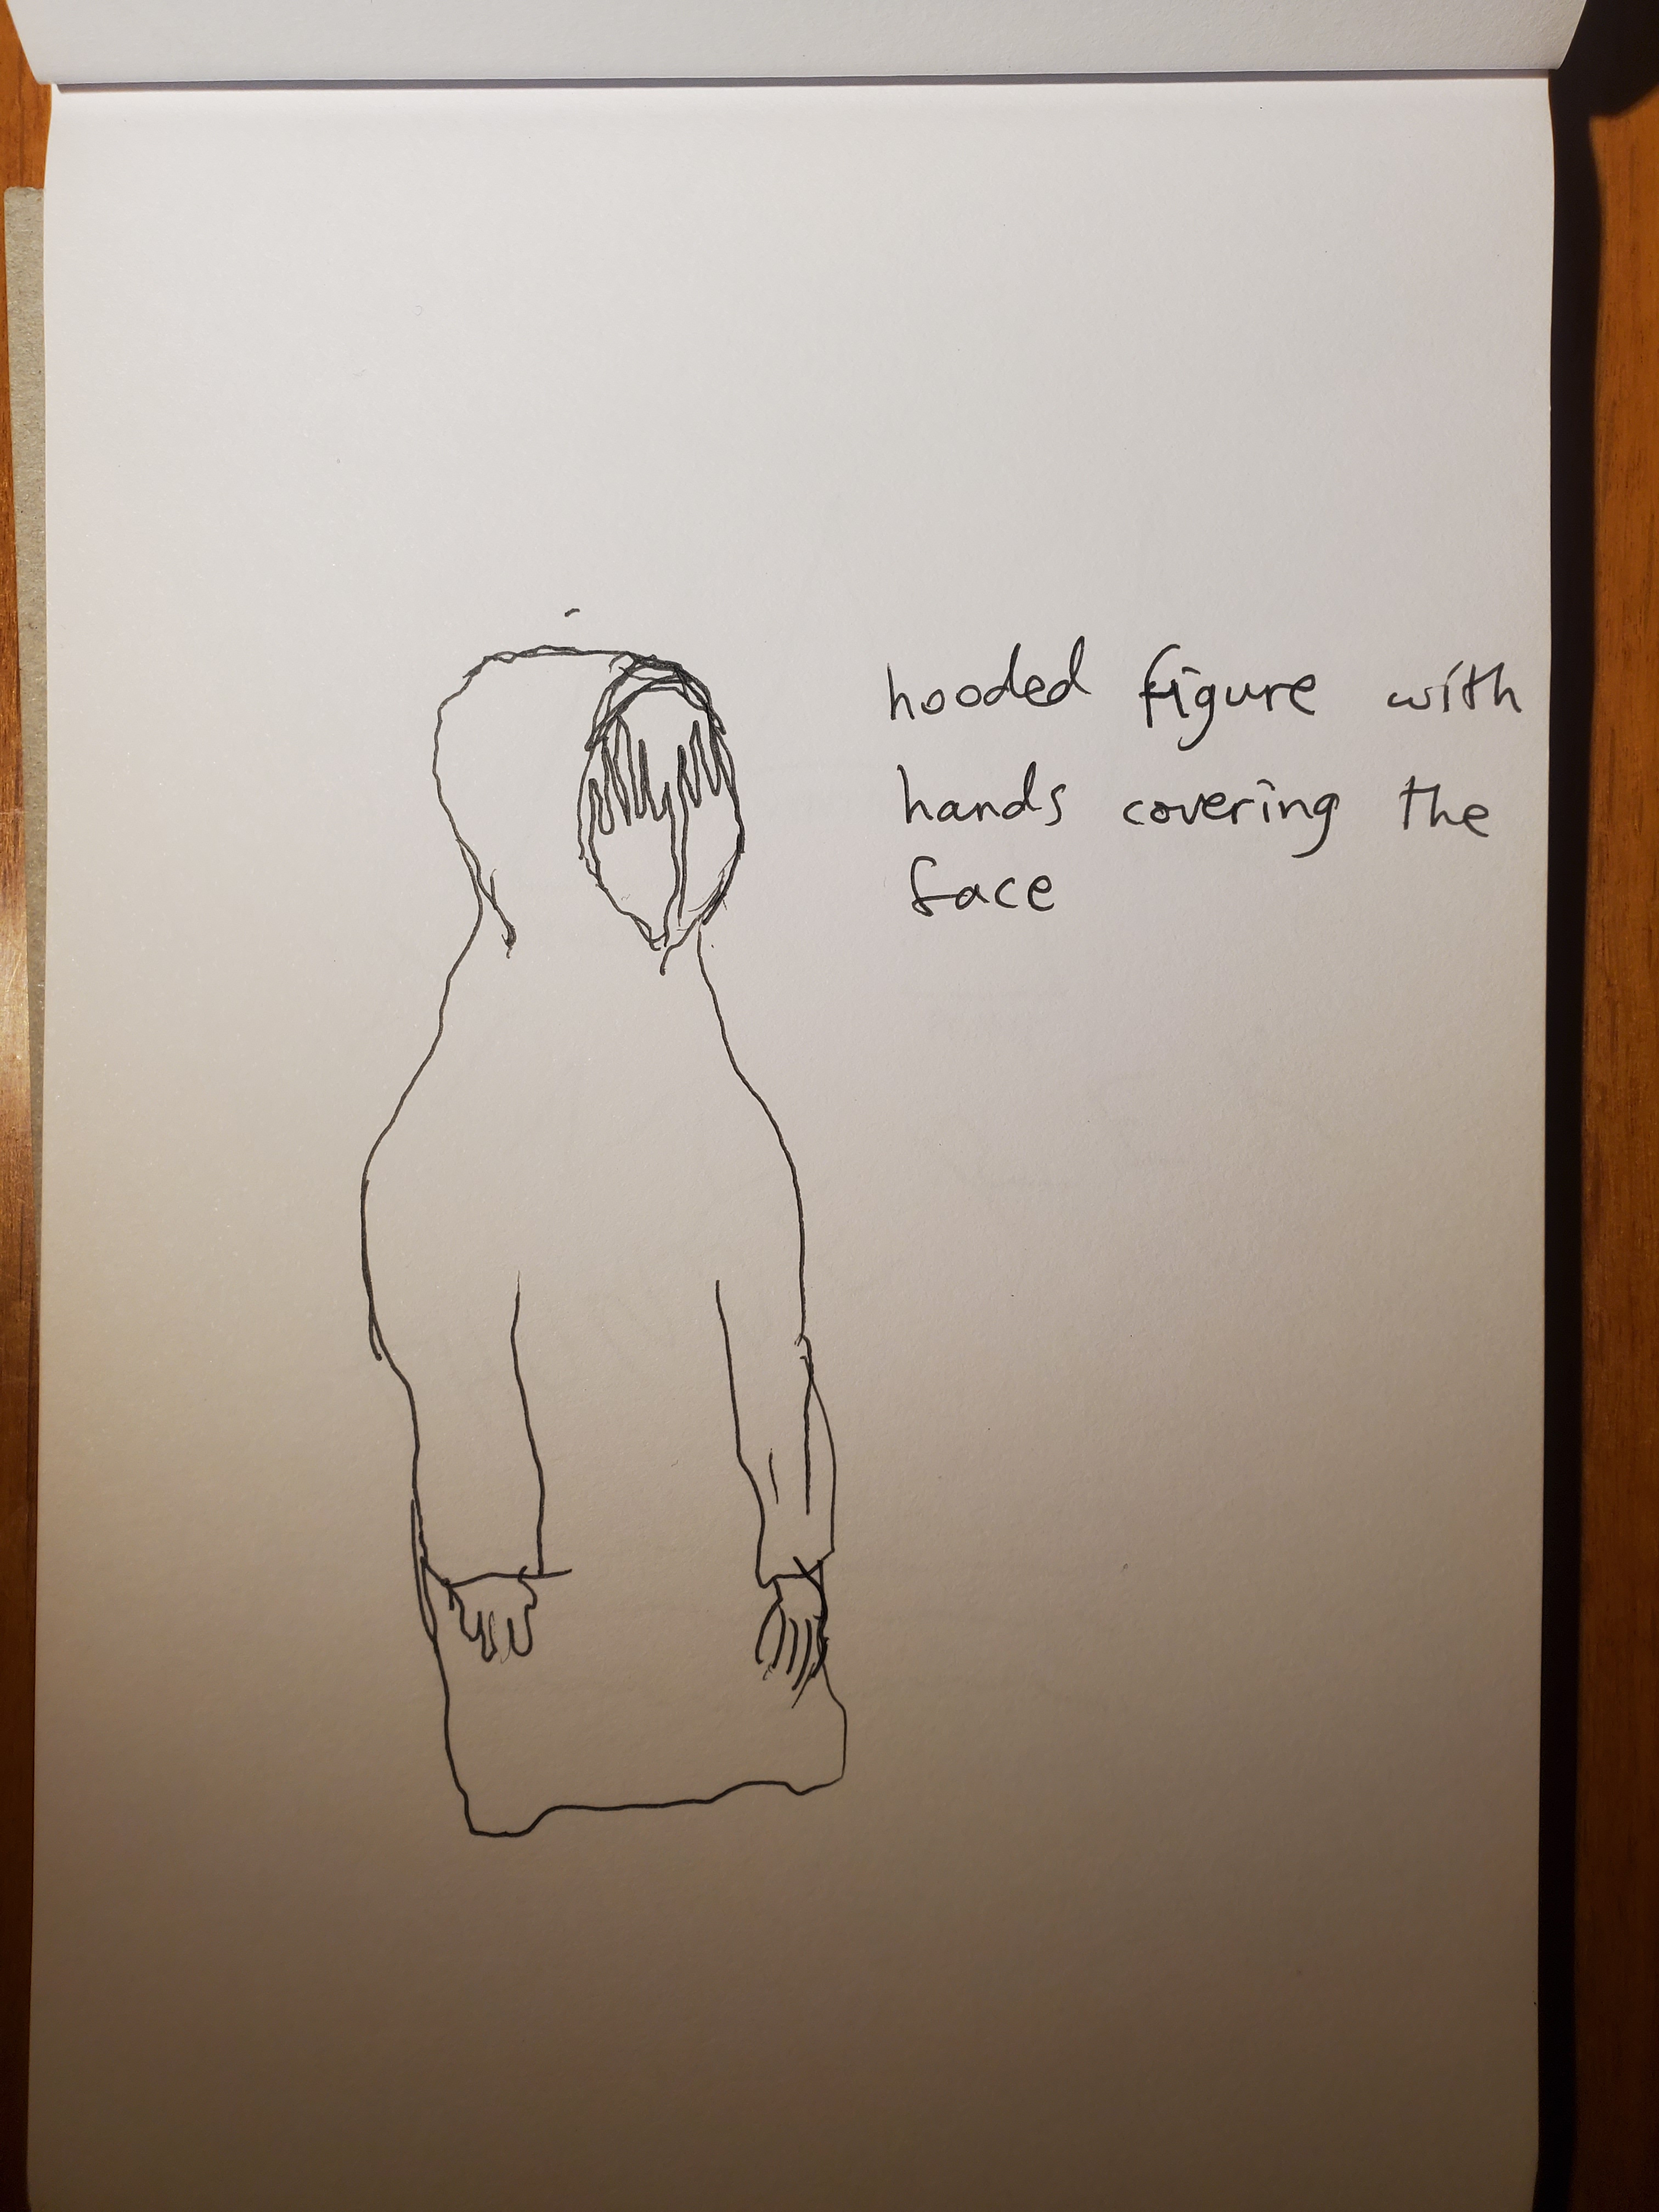 hooded figure with
hands covering the
face